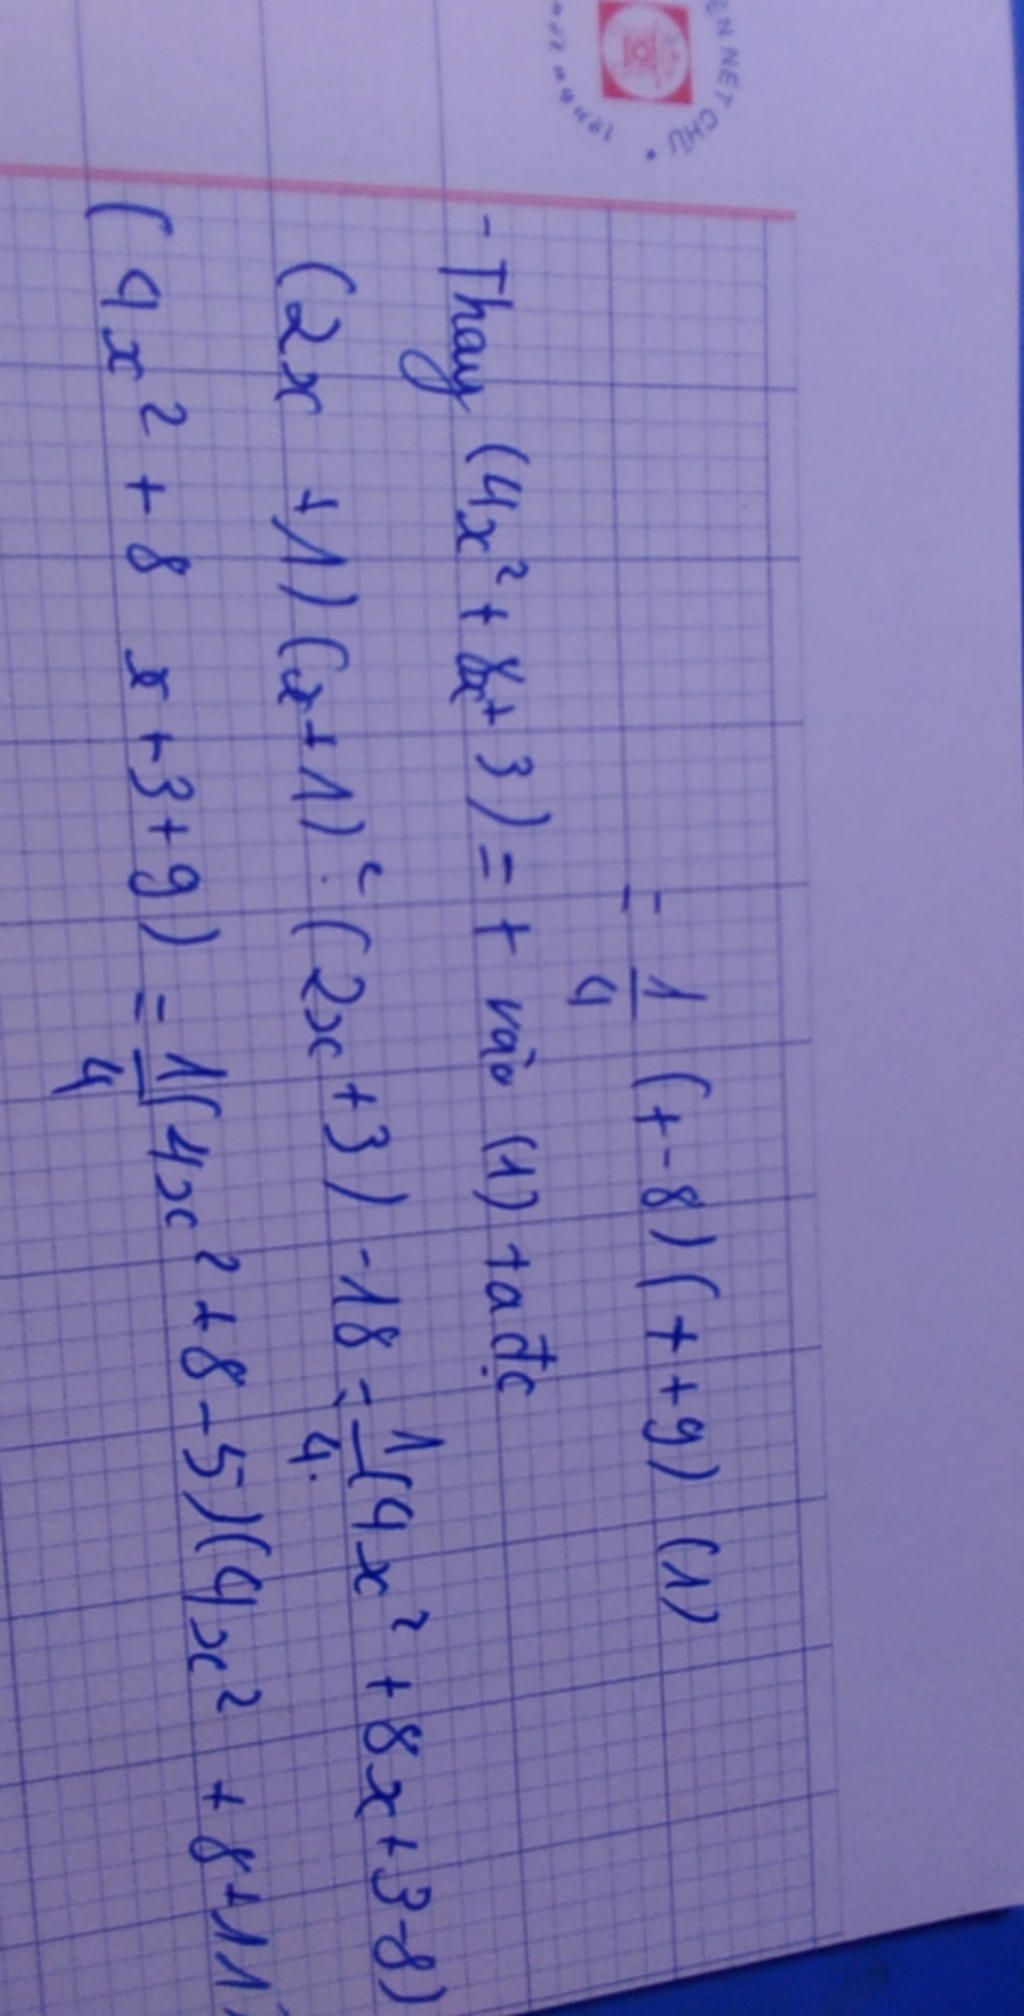 EN NET CHỮ
= 1/4 (t-8)(t+9) (1)
- Thay (4x² + 8x + 3) = t vào (1) ta đc
(2x + 1)(x+1)² . (2x + 3) - 18 = 1/4 (4x² + 8x + 3-8)
(4x² + 8 x + 3 + 9) = 1/4 (4x² + 8 - 5)(4x² + 8 + 11